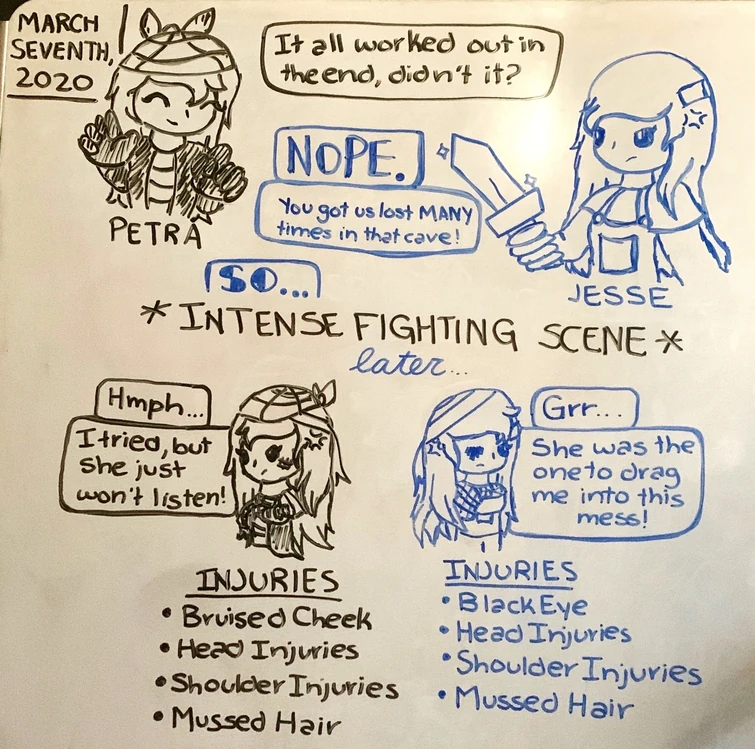 MARCH
SEVENTH,
2020
It all worked out in
the end, didn't it?
NOPE.
You got us lost MANY
times in that cave!
PETRA
JESSE
SO...
*INTENSE FIGHTING SCENE*
later...
Hmph...
I tried, but
she just
won't listen!
Grr...
She was the
one to drag
me into this
mess!
INJURIES
• Bruised Cheek
• Head Injuries
• Shoulder Injuries
• Mussed Hair
INJURIES
• Black Eye
• Head Injuries
• Shoulder Injuries
• Mussed Hair